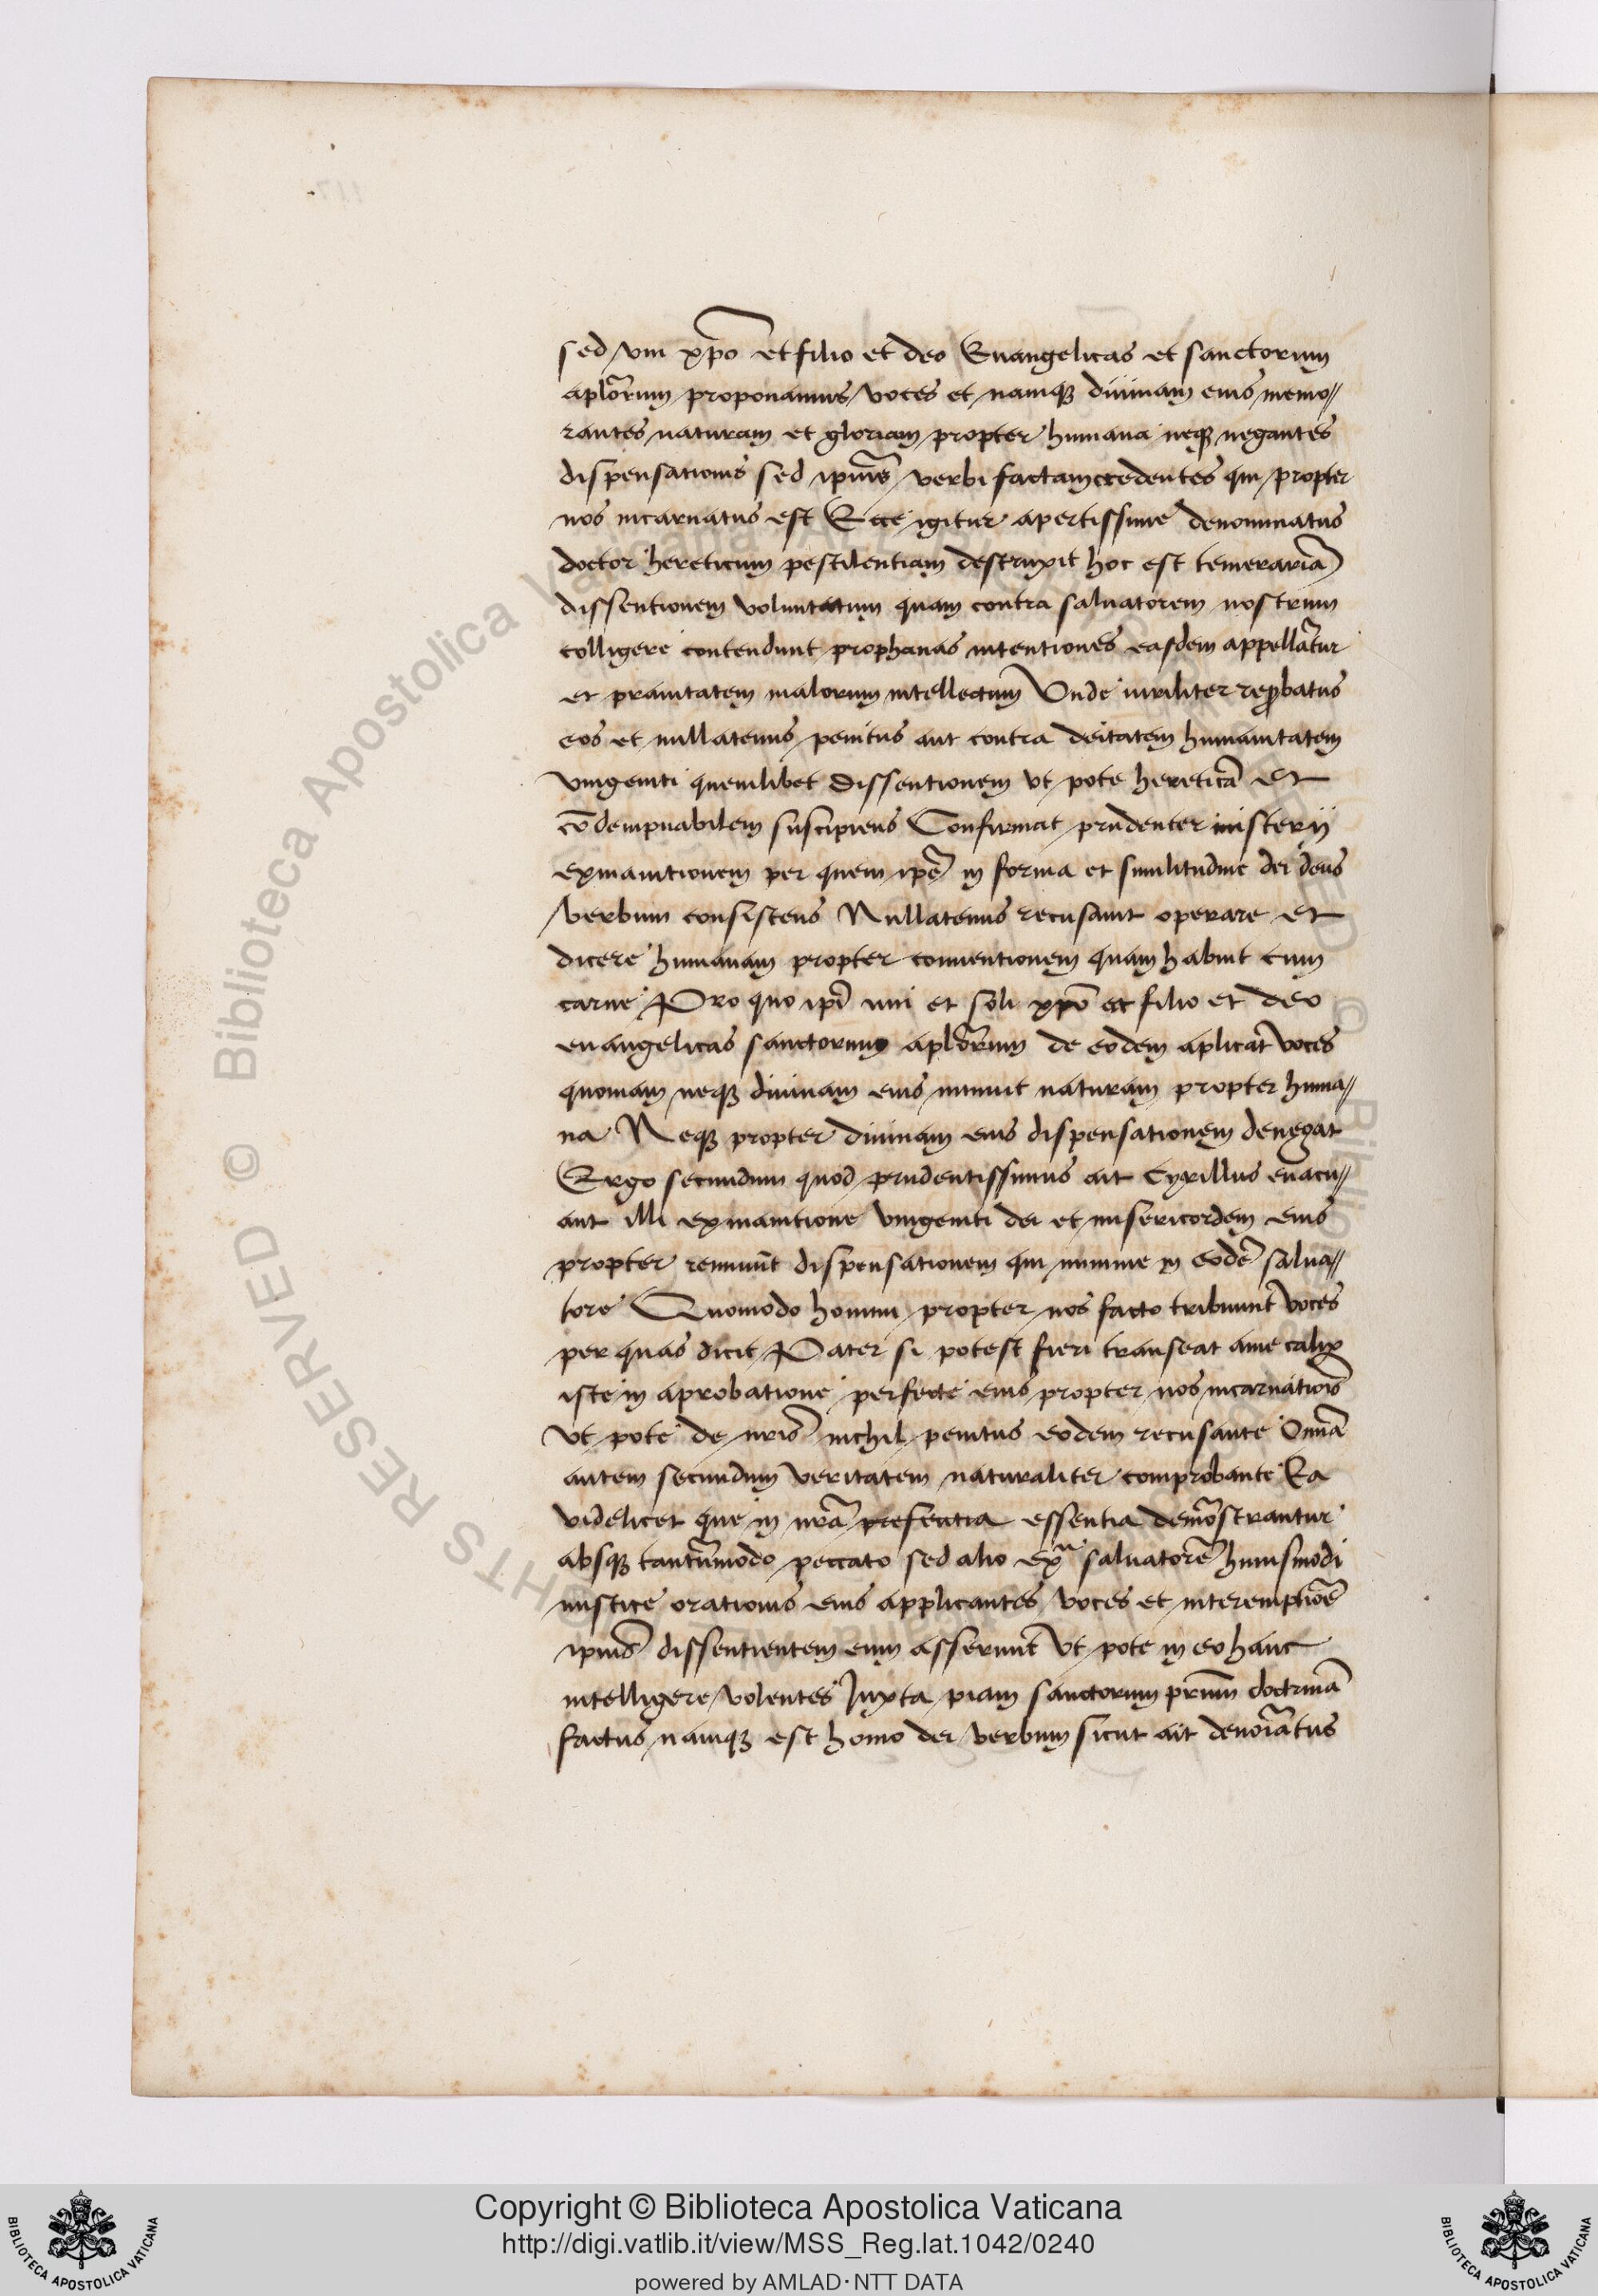 sed vni xp̃o et filio et deo Euangelicas et sanctorum
aplo᷑rum proponamus voces et namqȝ diuinam eius memo//
rantes naturam et gloriam propter humana neqȝ negantes
dispensationis sed ipiu᷑s verbi factam credentes qui propter
nos incarnatus est Ecce igitur apertissime denominatus
doctor hereticum pestilentiam destruxit hoc est temerariã
dissentionem voluntatum quam contra saluatorem nostrum
colligere contendunt prophanas intentiones easdem appellãtur
et prauitatem malorum intellectum Vnde viriliter reꝓbatus
eos et nullatenus penitus aut contra deitatem humanitatem
vnigeniti quemlibet dissentionem vt pote hereticã et
cõdempnabilem suscipiens Confirmat prudenter misterij
exinanitionem per quem ipẽ in forma et similitudine dei deus
verbum consistens Nullatenus recusauit operare et
dicere humanam propter conuentionem quam habuit cum
carne Pro quo ipĩ uni et soli xpõ et filio et deo
euangelicas sanctorum aplõrum de eodem aplicat voces
quoniam neqȝ diuinam eius minuit naturam propter huma//
na Neqȝ propter diuinam eius dispensationem denegat
Ergo secundum quod prudentissimus ait Cyrillus euacu//
ant illi exinanitione vnigeniti dei et misericordem eius
propter remuũt dispensationem qui minime in eodẽ salua//
tore Quomodo homini propter nos facto tribuunt voces
per quas dicit Pater si potest fieri transeat ame calix
iste in aprobatione perfecte eius propter nos incarnatiõis
vt pote de nr̃is nichil penitus eodem recusante Omĩa
autem secundum veritatem naturaliter comprobante Ea
videlicet que in nr̃a presentia essentia demõstrantur
absqȝ tantũmodo peccato sed alio exñ saluatorẽ huiusmodi
mistice orationis eius applicantes voces et interemptiõẽ
ipiu᷑s dissentientem eum asserunt vt pote in eo hanc
intelligere volentes Juxta piam sanctorum pr̃um doctrinã
factus namqȝ est homo dei verbum sicut ait denoĩatus
Copyright © Biblioteca Apostolica Vaticana
http://digi.vatlib.it/view/MSS_Reg.lat.1042/0240
powered by AMLAD·NTT DATA